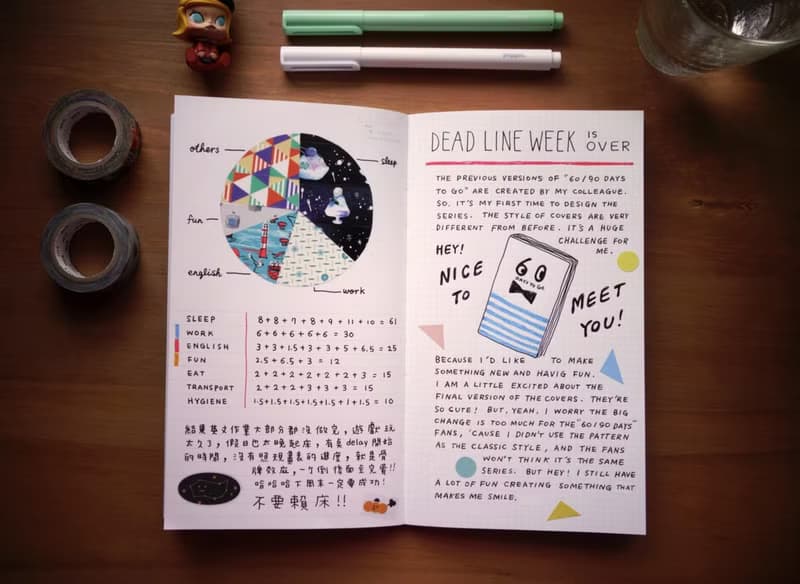 others
sleep
fun
english
work
SLEEP 8+8+7+8+9+11+10 = 61
WORK 6+6+6+6+6 = 30
ENGLISH 3+3+1.5+3+3+5+6.5 = 25
FUN 2.5+6.5+3 = 12
EAT 2+2+2+2+2+2+3 = 15
TRANSPORT 2+2+2+3+3+3 = 15
HYGIENE 1.5+1.5+1.5+1.5+1.5+1+1.5 = 10
結果英文作業大部分都沒做完,遊戲玩
太久了,假日也太晚起床,有點delay開始
的時間,沒有照規畫表的進度,就是骨
牌效應,一個倒後面全完蛋!!
哈哈哈下周末一定要成功!
不要賴床!!
DEAD LINE WEEK IS OVER
THE PREVIOUS VERSIONS OF "60/90 DAYS
TO GO" ARE CREATED BY MY COLLEAGUE.
SO, IT'S MY FIRST TIME TO DESIGN THE
SERIES. THE STYLE OF COVERS ARE VERY
DIFFERENT FROM BEFORE. IT'S A HUGE
CHALLENGE FOR
ME.
HEY!
NICE
TO
60
DAYS TO GO
MEET
YOU!
BECAUSE I'D LIKE TO MAKE
SOMETHING NEW AND HAVIG FUN.
I AM A LITTLE EXCITED ABOUT THE
FINAL VERSION OF THE COVERS. THEY'RE
SO CUTE! BUT, YEAH, I WORRY THE BIG
CHANGE IS TOO MUCH FOR THE "60/90 DAYS"
FANS, 'CAUSE I DIDN'T USE THE PATTERN
AS THE CLASSIC STYLE, AND THE FANS
WON'T THINK IT'S THE SAME
SERIES. BUT HEY! I STILL HAVE
A LOT OF FUN CREATING SOMETHING THAT
MAKES ME SMILE.